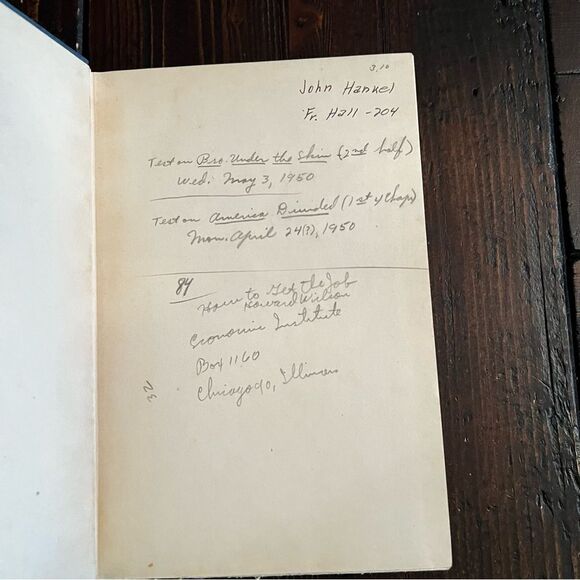 3,10
John Hankel
Fr. Hall - 204
Test on Bro. Under the Skin (2nd half)
Wed. May 3, 1950
Test on America Divided (1st 4 Chaps)
Mon. April 24(?), 1950
84
How to Get the Job
Howard Wilson
Economic Institute
Box 1160
Chicago 90, Illinois
32